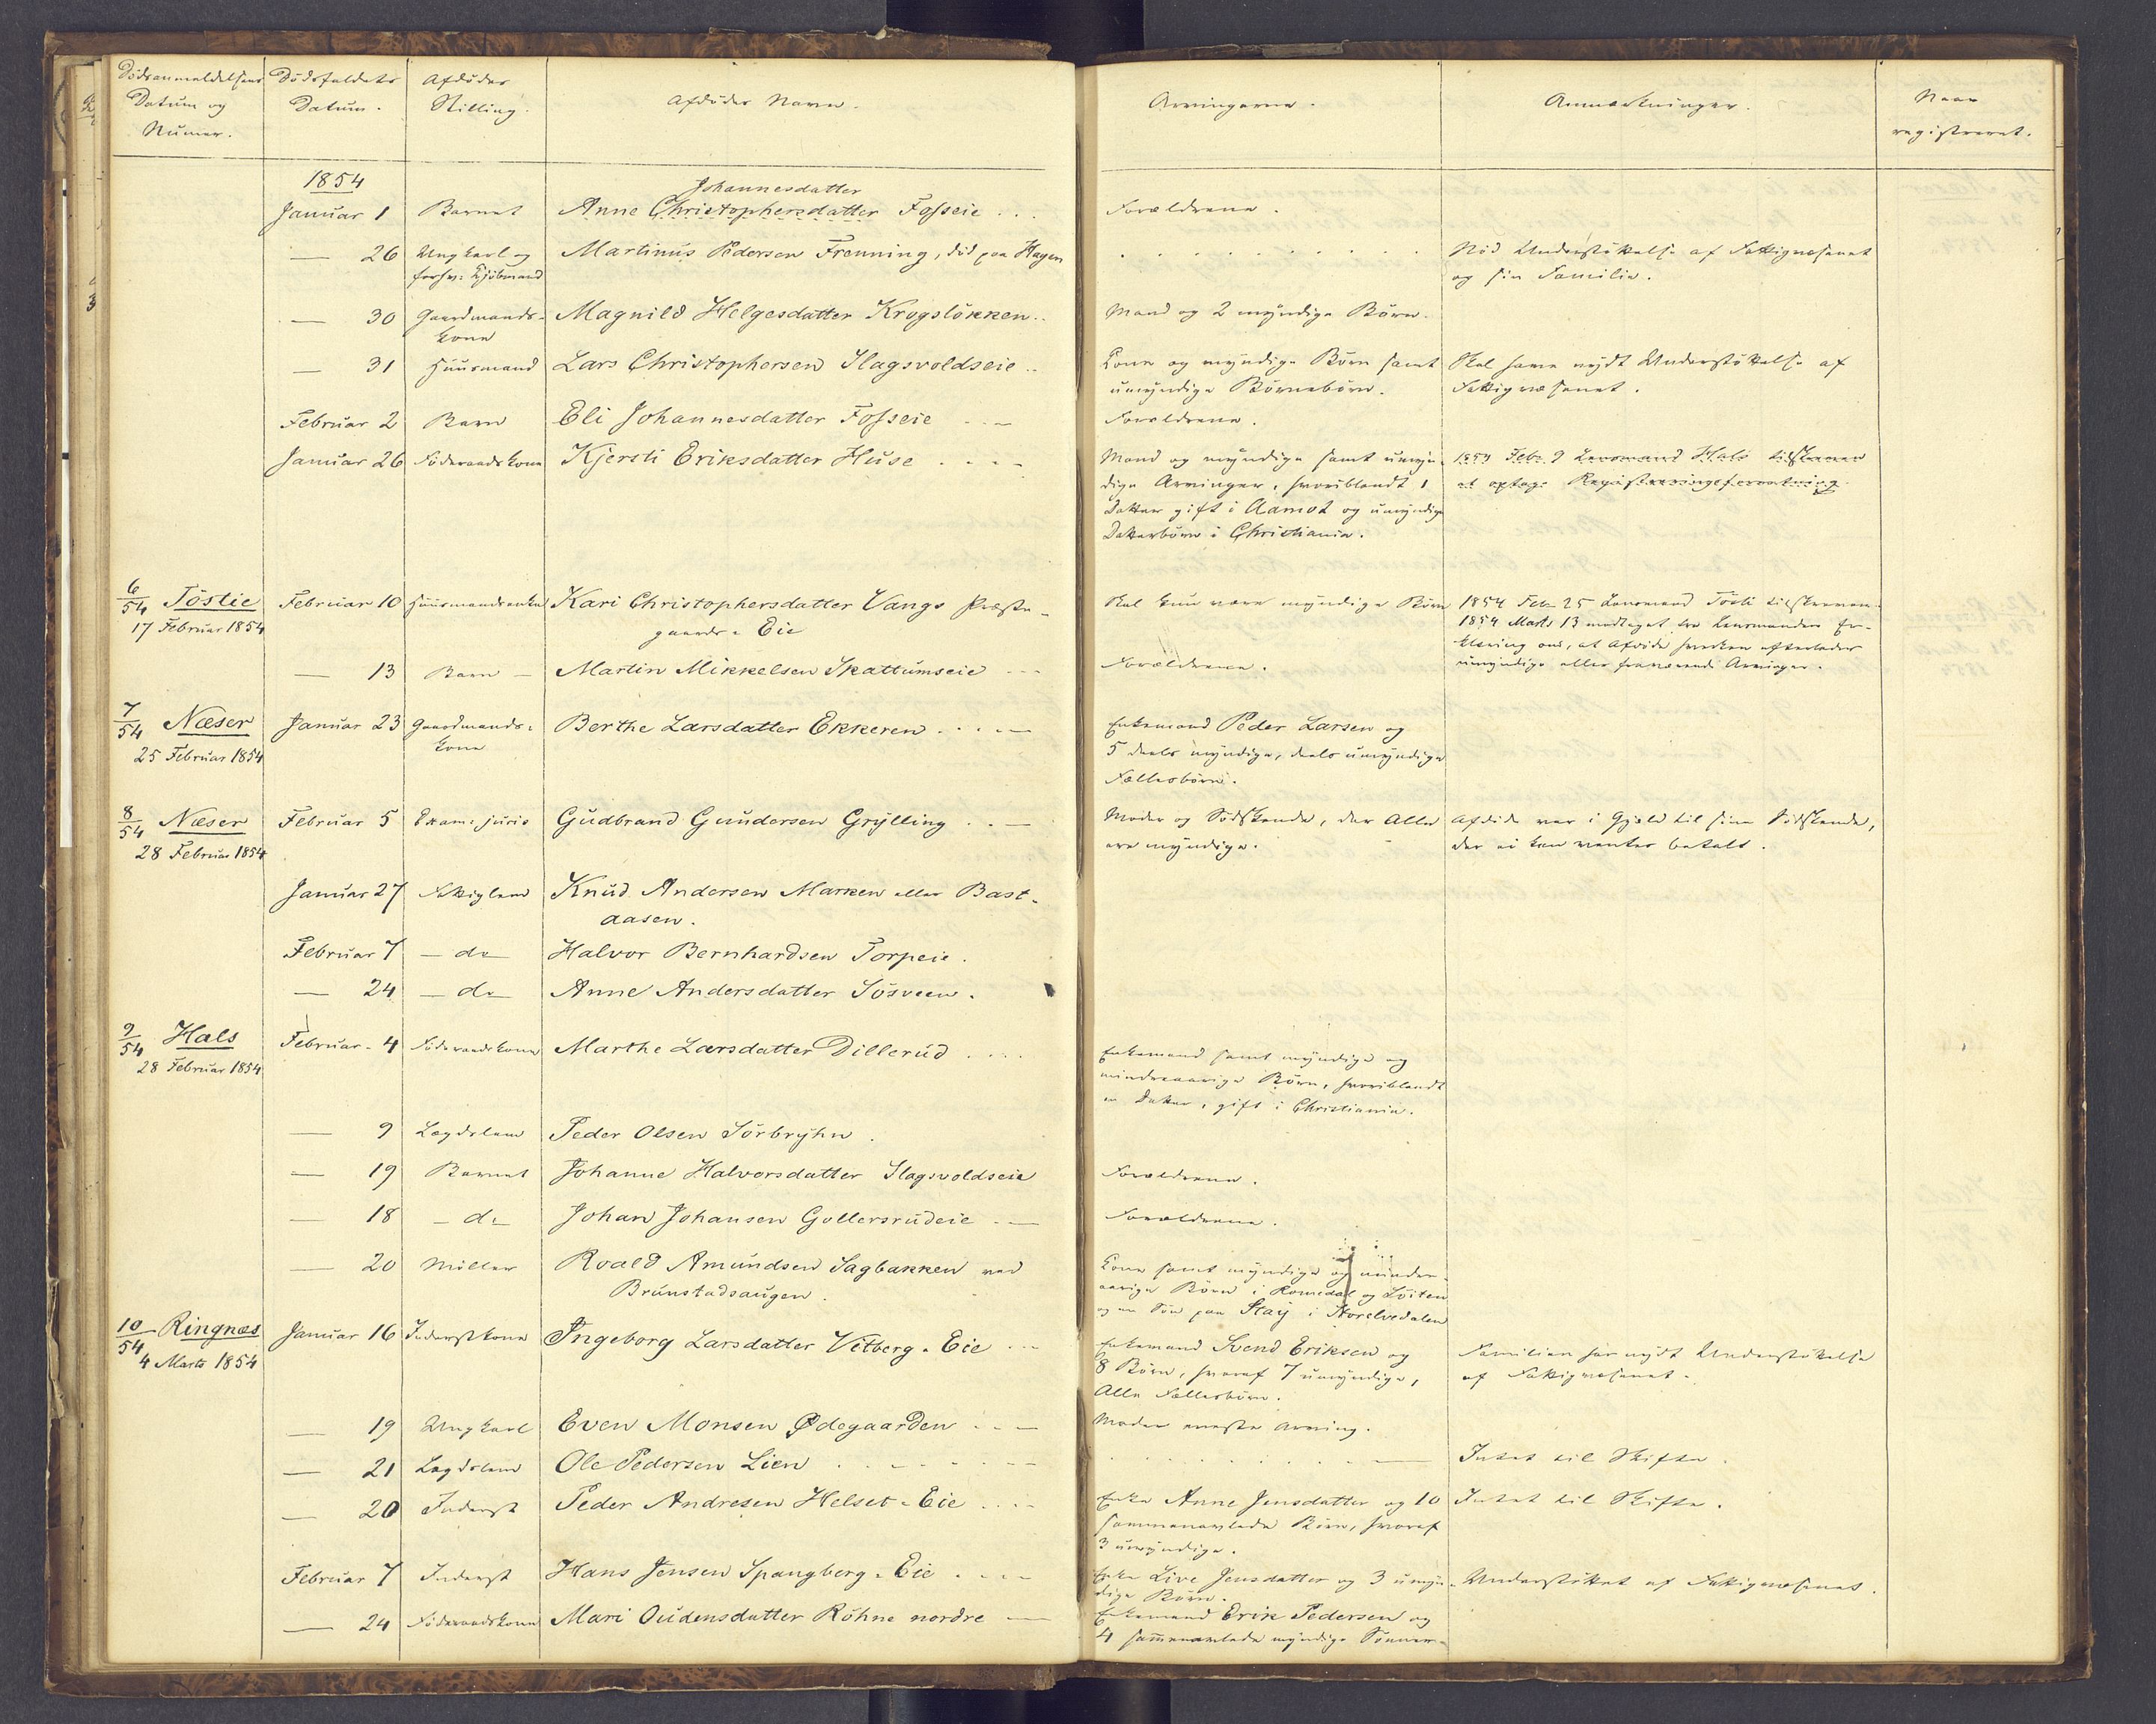 Dödsanmeldelsens Datum og Numer.
Dödsfaldets Datum.
Afdödes Stilling.
Afdödes Navn.
Arvingerne.
Anmærkninger.
Naar registreret.
1854
Johannesdatter
Januar 1 Barnet Anne Christophersdatter Fosseie . . . Forældrene.
— 26 Ungkarl og Martinus Pedersen Frenning, död paa Hagen Nöd Understöttelse af Fattigvæsenet
forhv: Kjöbmand og sin Familie.
— 30 Gaardmands- Magnild Helgesdatter Krogslökken . . Mand og 2 myndige Börn.
kone
— 31 Huusmand Lars Christophersen Slagsvoldseie . . Kone og myndige Börn samt Skal have nydt Understöttelse af
umyndige Börnebörn. Fattigvæsenet.
Februar 2 Barn Eli Johannesdatter Fosseie Forældrene.
Januar 26 Föderaadskone Kjersti Eriksdatter Huse Mand og myndige samt umyn- 1854 Febr 9 Lensmand Hals tilskreven
dige Arvinger, hvoriblandt 1 at optage Registreringsforretning.
Datter gift i Aamot og umyndige
Datterbörn i Christiania.
6/54 Töstie Februar 10 Huusmandsenke Kari Christophersdatter Vangs Præste- Skal kun være myndige Börn 1854 Feb 25 Lensmand Tösti tilskreven.
17 Februar 1854 gaards-Eie 1854 Marts 13 modtaget fra Lensmanden Er-
klæring om, at Afdöde hverken efterlader
umyndige eller fraværende Arvinger.
— 13 Barn — Martin Mikkelsen Skattumseie Forældrene.
7/54 Næser Januar 23 Gaardmands- Berthe Larsdatter Ekkeren Enkemand Peder Larsen og
25 Februar 1854 kone 5 deels myndige, deels umyndige
Fællesbörn.
8/54 Næser Februar 5 Exam: juris Gudbrand Gundersen Grylling Moder og Södskende, der Alle Afdöde var i Gjæld til sine Södskende,
28 Februar 1854 ere myndige. der ei kan ventes betalt.
Januar 27 Fattiglem Knud Andersen Marken eller Bast-
aasen.
Februar 7 — do — Halvor Bernhardsen Torpeie.
— 24 — do — Anne Andersdatter Sösveen.
9/54 Hals Februar 4 Föderaadskone Marthe Larsdatter Dillerud Enkemand samt myndige og
28 Februar 1854 mindreaarige Börn, hvoriblandt
en Datter, gift i Christiania.
— 9 Lægdslem Peder Olsen Sörbryhn.
— 19 Barnet Johanne Halvorsdatter Slagsvoldseie Forældrene.
— 18 — do — Johan Johansen Gollersrudeie Forældrene.
— 20 Möller Roald Amundsen Sagbakken ved Kone samt myndige og minder-
Brunstadsaugen. aarige Börn i Romedal og Löiten
og en Sön paa Staij i Storelvedalen
10/54 Ringnæs Januar 16 Inderstkone Ingeborg Larsdatter Vitberg-Eie Enkemand Svend Eriksen og Familien har nydt Understöttelse
4 Marts 1854 8 Börn, hvoraf 7 umyndige, af Fattigvæsenet.
Alle Fællesbörn.
— 19 Ungkarl Even Monsen Ødegaarden Moder eneste Arving.
— 21 Lægdslem Ole Pedersen Lien Intet til Skifte.
— 20 Inderst Peder Andresen Helset-Eie Enke Anne Jensdatter og 10 Intet til Skifte.
sammenavlede Börn, hvoraf
3 umyndige.
Februar 7 Inderst Hans Jensen Spangberg-Eie Enke Live Jensdatter og 3 umyn- Understöttet af Fattigvæsenet.
dige Börn.
— 24 Föderaadskone Mari Oudensdatter Röhne nordre Enkemand Erik Pedersen og
4 sammenavlede myndige Sönner.